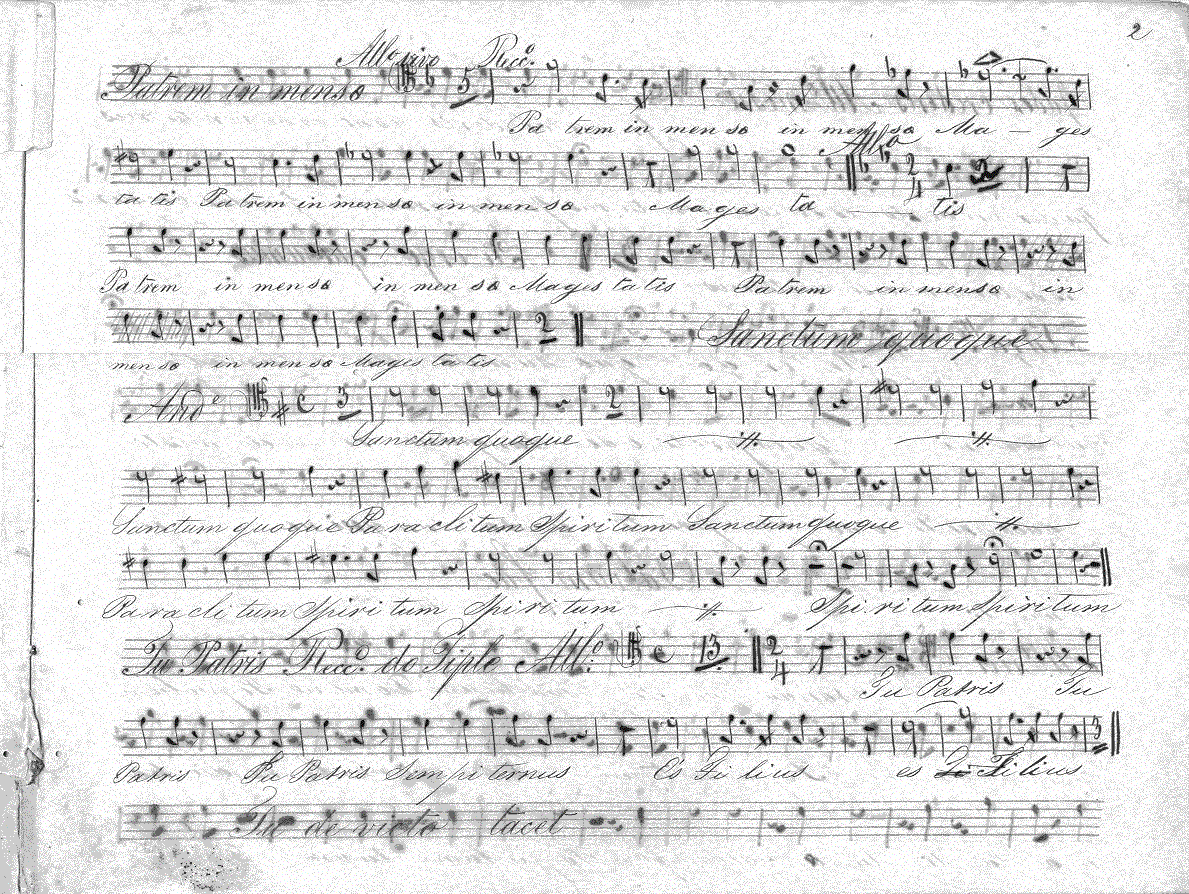 2
Allo vivo Recco.
Patrem in menso 5
Pa trem in men so in men so Ma - ges
Allo
2 4 2
ta tis Pa trem in men so in men so Ma ges ta tis
Pa trem in men so in men so Ma ges ta tis Pa trem in menso in
2 Sanctum quoque
men so in men so Mages ta tis
Ande C 3 2
Sanctum quoque
Sanctum quoque Pa ra cli tum Spiri tum Sanctum quoque
Pa ra cli tum Spiri tum Spi ri tum Spi ri tum Spiri tum
Tu Patris Recco. do Tiple Allo. C 13 2 4
Tu Patris Tu
3
Patris Tu Patris Sempi ternus Es Fi lius es Fi lius
Tu de victo tacet